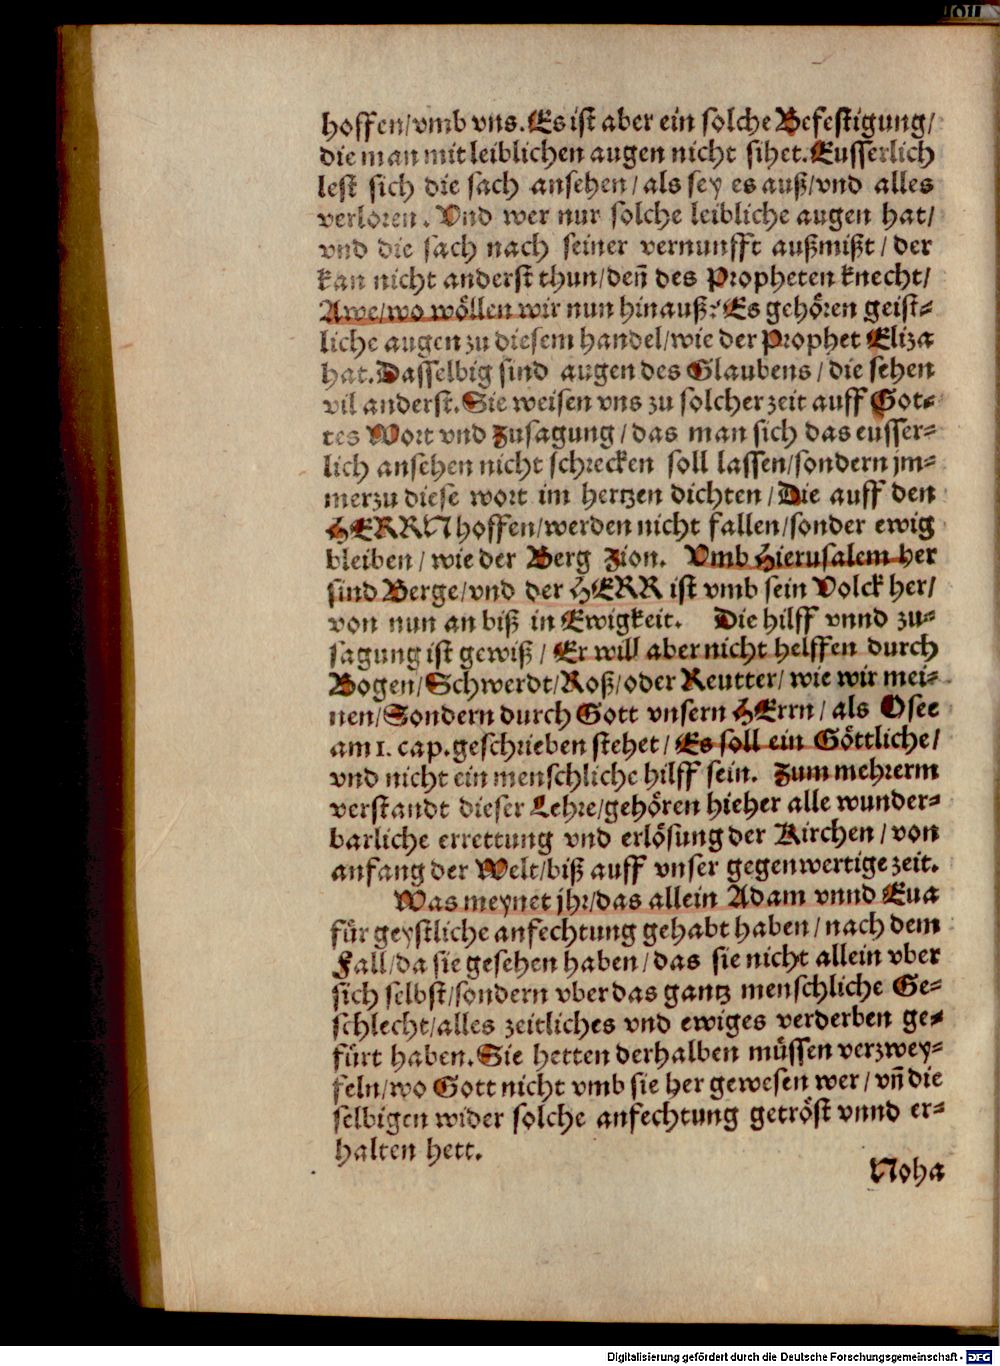 hoffen/vmb vns. Es ist aber ein solche Befestigung/
die man mit leiblichen augen nicht sihet. Eusserlich
lest sich die sach ansehen/als sey es auß/vnd alles
verloren. Vnd wer nur solche leibliche augen hat/
vnd die sach nach seiner vernunfft außmißt/der
kan nicht anderst thun/deñ des Propheten knecht/
Awe/wo wöllen wir nun hinauß? Es gehören geist-
liche augen zu diesem handel/wie der Prophet Eliza
hat. Dasselbig sind augen des Glaubens/die sehen
vil anderst. Sie weisen vns zu solcher zeit auff Got-
tes Wort vnd Zusagung/das man sich das eusser-
lich ansehen nicht schrecken soll lassen/sondern jm-
merzu diese wort im hertzen dichten/Die auff den
HERRN hoffen/werden nicht fallen/sonder ewig
bleiben/wie der Berg Zion. Vmb Hierusalem her
sind Berge/vnd der HERR ist vmb sein Volck her/
von nun an biß in Ewigkeit. Die hilff vnnd zu-
sagung ist gewiß/Er will aber nicht helffen durch
Bogen/Schwerdt/Roß/oder Reutter/wie wir mei-
nen/Sondern durch Gott vnsern HErrn/als Osee
am 1. cap. geschrieben stehet/Es soll ein Göttliche/
vnd nicht ein menschliche hilff sein. Zum mehrerm
verstandt dieser Lehre/gehören hieher alle wunder-
barliche errettung vnd erlösung der Kirchen/von
anfang der Welt/biß auff vnser gegenwertige zeit.
Was meynet jhr/das allein Adam vnnd Eua
für geystliche anfechtung gehabt haben/nach dem
Fall/da sie gesehen haben/das sie nicht allein vber
sich selbst/sondern vber das gantz menschliche Ge-
schlecht/alles zeitliches vnd ewiges verderben ge-
fürt haben. Sie hetten derhalben müssen verzwey-
feln/wo Gott nicht vmb sie her gewesen wer/vñ die
selbigen wider solche anfechtung getröst vnnd er-
halten hett.
Noha
Digitalisierung gefördert durch die Deutsche Forschungsgemeinschaft - DFG